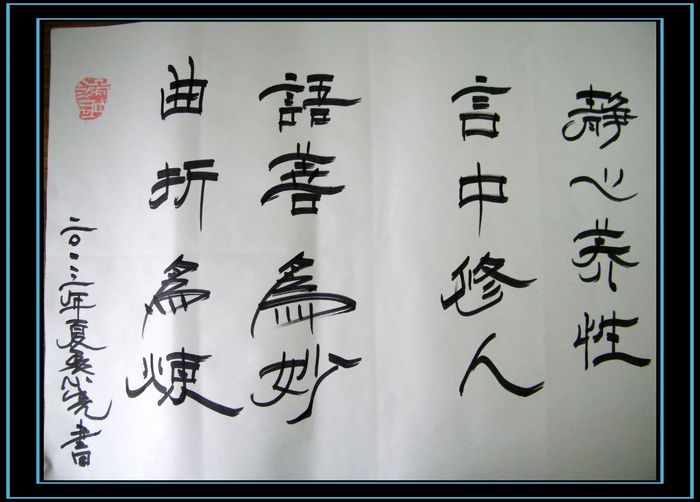 静心养性
言中修人
語善為妙
曲折為煉
二〇一三年夏書